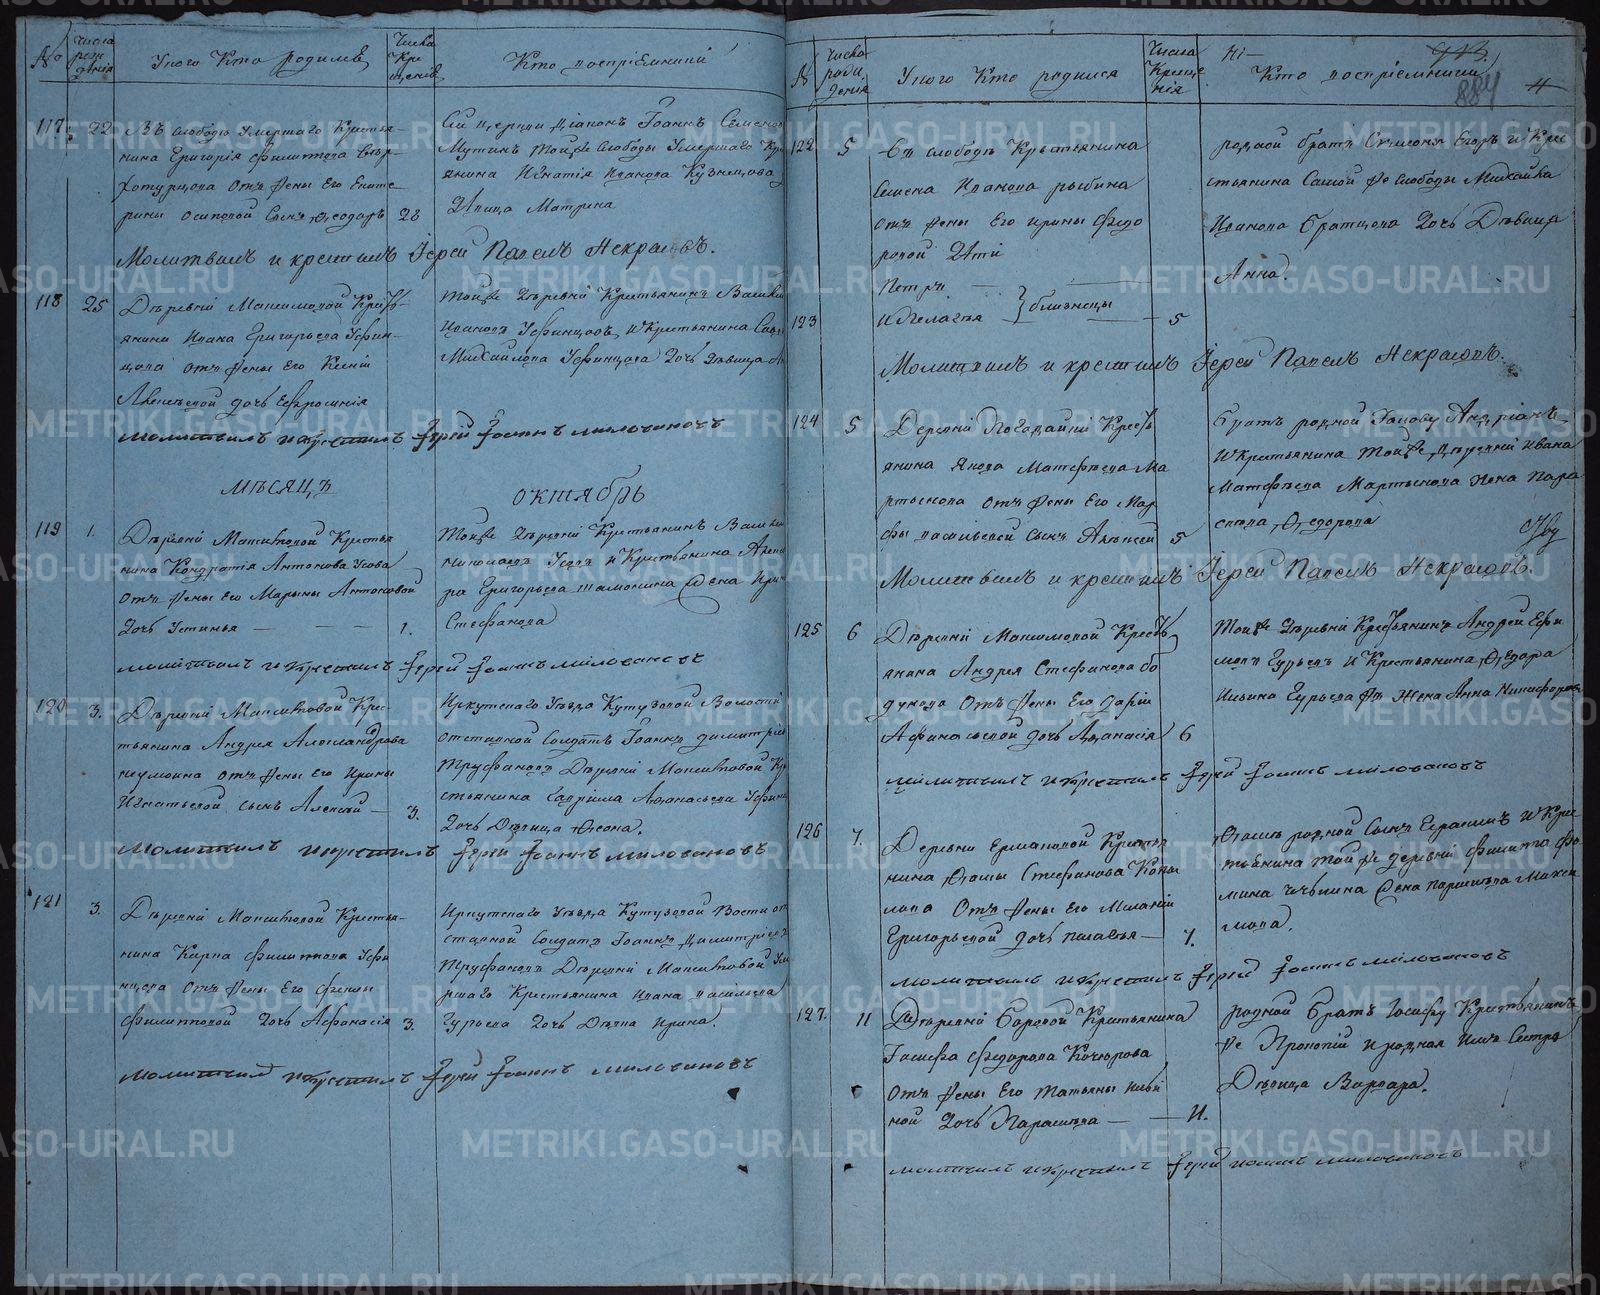 №
Числа рождения
У кого кто родился
Числа крещения
Кто восприемники
117.
22
Въ слободѣ умершаго крестья-
нина Григорія Филиппова Вер-
хотурцова отъ жены его Екате-
рины Осиповой сынъ Ѳеодоръ
28
Сей церкви діаконъ Іоаннъ Семеновъ
той же слободы умершаго кре
янина Игнатія Иванова Кузнецова
дѣвица Матрена
Молитвилъ и крестилъ Іерей Павелъ Некрасовъ.
118
25
Деревни Максимовой Крест-
янина Ивана Григорьева Уфин-
цова отъ жены его Ксеніи
дочь Евфросинія
той же деревни крестьянинъ Васил
Ивановъ Уфинцовъ, и крестьянина Савв
Михайлова Уфинцова дочь дѣвица
молитвилъ и крестилъ Іерей Іоаннъ Миловановъ
мѣсяцъ октябрь
119
1.
Деревни Максимовой крестья
нина Кондратія Антонова Усова
отъ жены его Марины Антоновой
дочь Устинья
1.
той же деревни крестьянинъ Васил
Николаевъ Усовъ и крестьянина
ра Григорьева жена Ири
Стефанова
молитвилъ и крестилъ Іерей Іоаннъ Миловановъ
120
3.
Деревни Максимовой Кре-
тьянина Андрея Александрова
Неумоина отъ жены его Ирины
Игнатьевой сынъ Алексей
3.
Иркутскаго уѣзда Кутузовой волости
отставной солдатъ Іоаннъ Димитріев
Труфановъ деревни Максимовой Кр
стьянина Гавріила Афанасьева Уфин
дочь дѣвица Ѳеона.
молитвилъ и крестилъ Іерей Іоаннъ Миловановъ
121
3.
Деревни Максимовой крестья-
нина Карпа Филиппова Уфи
нцова отъ жены его
Филипповой дочь Афанасія
3.
Иркутскаго уѣзда Кутузовой вости от
ставной солдатъ Іоаннъ Димитріевъ
Труфановъ деревни Максимовой Уме
ршаго крестьянина Ивана Васильева
Гурьева дочь дѣвка Ирина.
молитвилъ и крестилъ Іерей Іоаннъ Миловановъ
№
Числа рождения
У кого кто родился
Числа крещенія
Кто восприемники
884
122
5
Въ слободѣ крестьянина
Семена Иванова Рыбина
отъ жены его Ирины Федо
ровой дѣти
Петръ
123
и Пелагѣя } близнецы
5
родной братъ Симеона Егоръ и крес
стьянина самой же слободы Михайла
Иванова Братцова дочь дѣвица
Анна.
Молитвилъ и крестилъ Іерей Павелъ Некрасовъ.
124
5
Деревни Погодайки крестъ
янина Якова Матфѣева Ма
ртынова отъ жены его Мар
фы Васильевой сынъ Алексей
5
братъ родной Іакову Андріанъ
и крестьянина той же деревни Ивана
Матфѣева Мартынова жена Пара
скева Ѳедорова
Молитвилъ и крестилъ Іерей Павелъ Некрасовъ.
125
6
Деревни Максимовой Кресть
янина Андрея Стефанова Бо
дунова отъ жены его Даріи
Афанасьевой дочь Афанасія
6
той же деревни крестьянинъ Андрей Ефи
мовъ Гурьевъ и крестьянина Ѳедора
Ильина Гурьева жена Анна Никифоров
молитвилъ и крестилъ Іерей Іоаннъ Миловановъ
126
7.
Деревни Ермаковой крестья
нина Ѳомы Стефанова Копы
лова отъ жены его Меланіи
Григорьевой дочь Пелагѣя
7.
Ѳомѣ родной сынъ Герасимъ и крес
тьянина той же деревни Филиппа Фо
мина жена Параскева Макси
мова.
молитвилъ и крестилъ Іерей Іоаннъ Миловановъ
127.
11
Деревни Боровой крестьянина
Іосифа Федорова Кочюрова
отъ жены его Татьяны
ной дочь Парасковѣа
11.
родной братъ Іосифу крестьянинъ
же Прокопій и родная имъ сестра
дѣвица Варвара.
молитвилъ и крестилъ Іерей Іоаннъ Миловановъ
METRIKI.GASO-URAL.RU